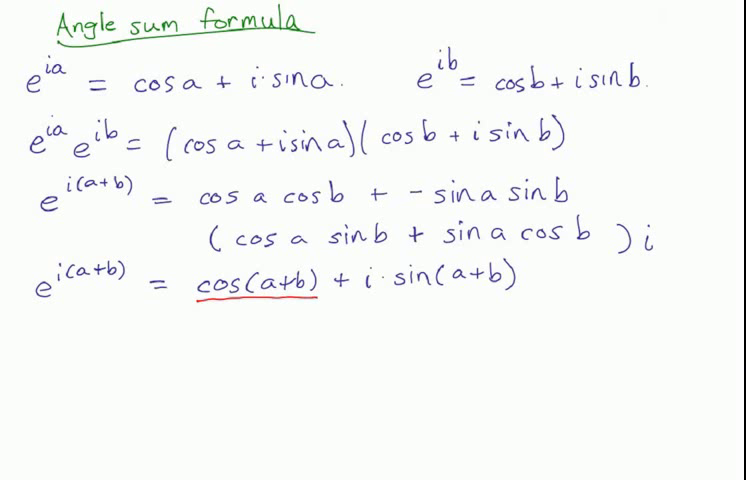 Angle sum formula
e^{ia} = cos a + i · sin a. e^{ib} = cos b + i sin b.
e^{ia} e^{ib} = (cos a + i sin a)(cos b + i sin b)
e^{i(a+b)} = cos a cos b + - sin a sin b
(cos a sin b + sin a cos b ) i
e^{i(a+b)} = cos(a+b) + i · sin(a+b)